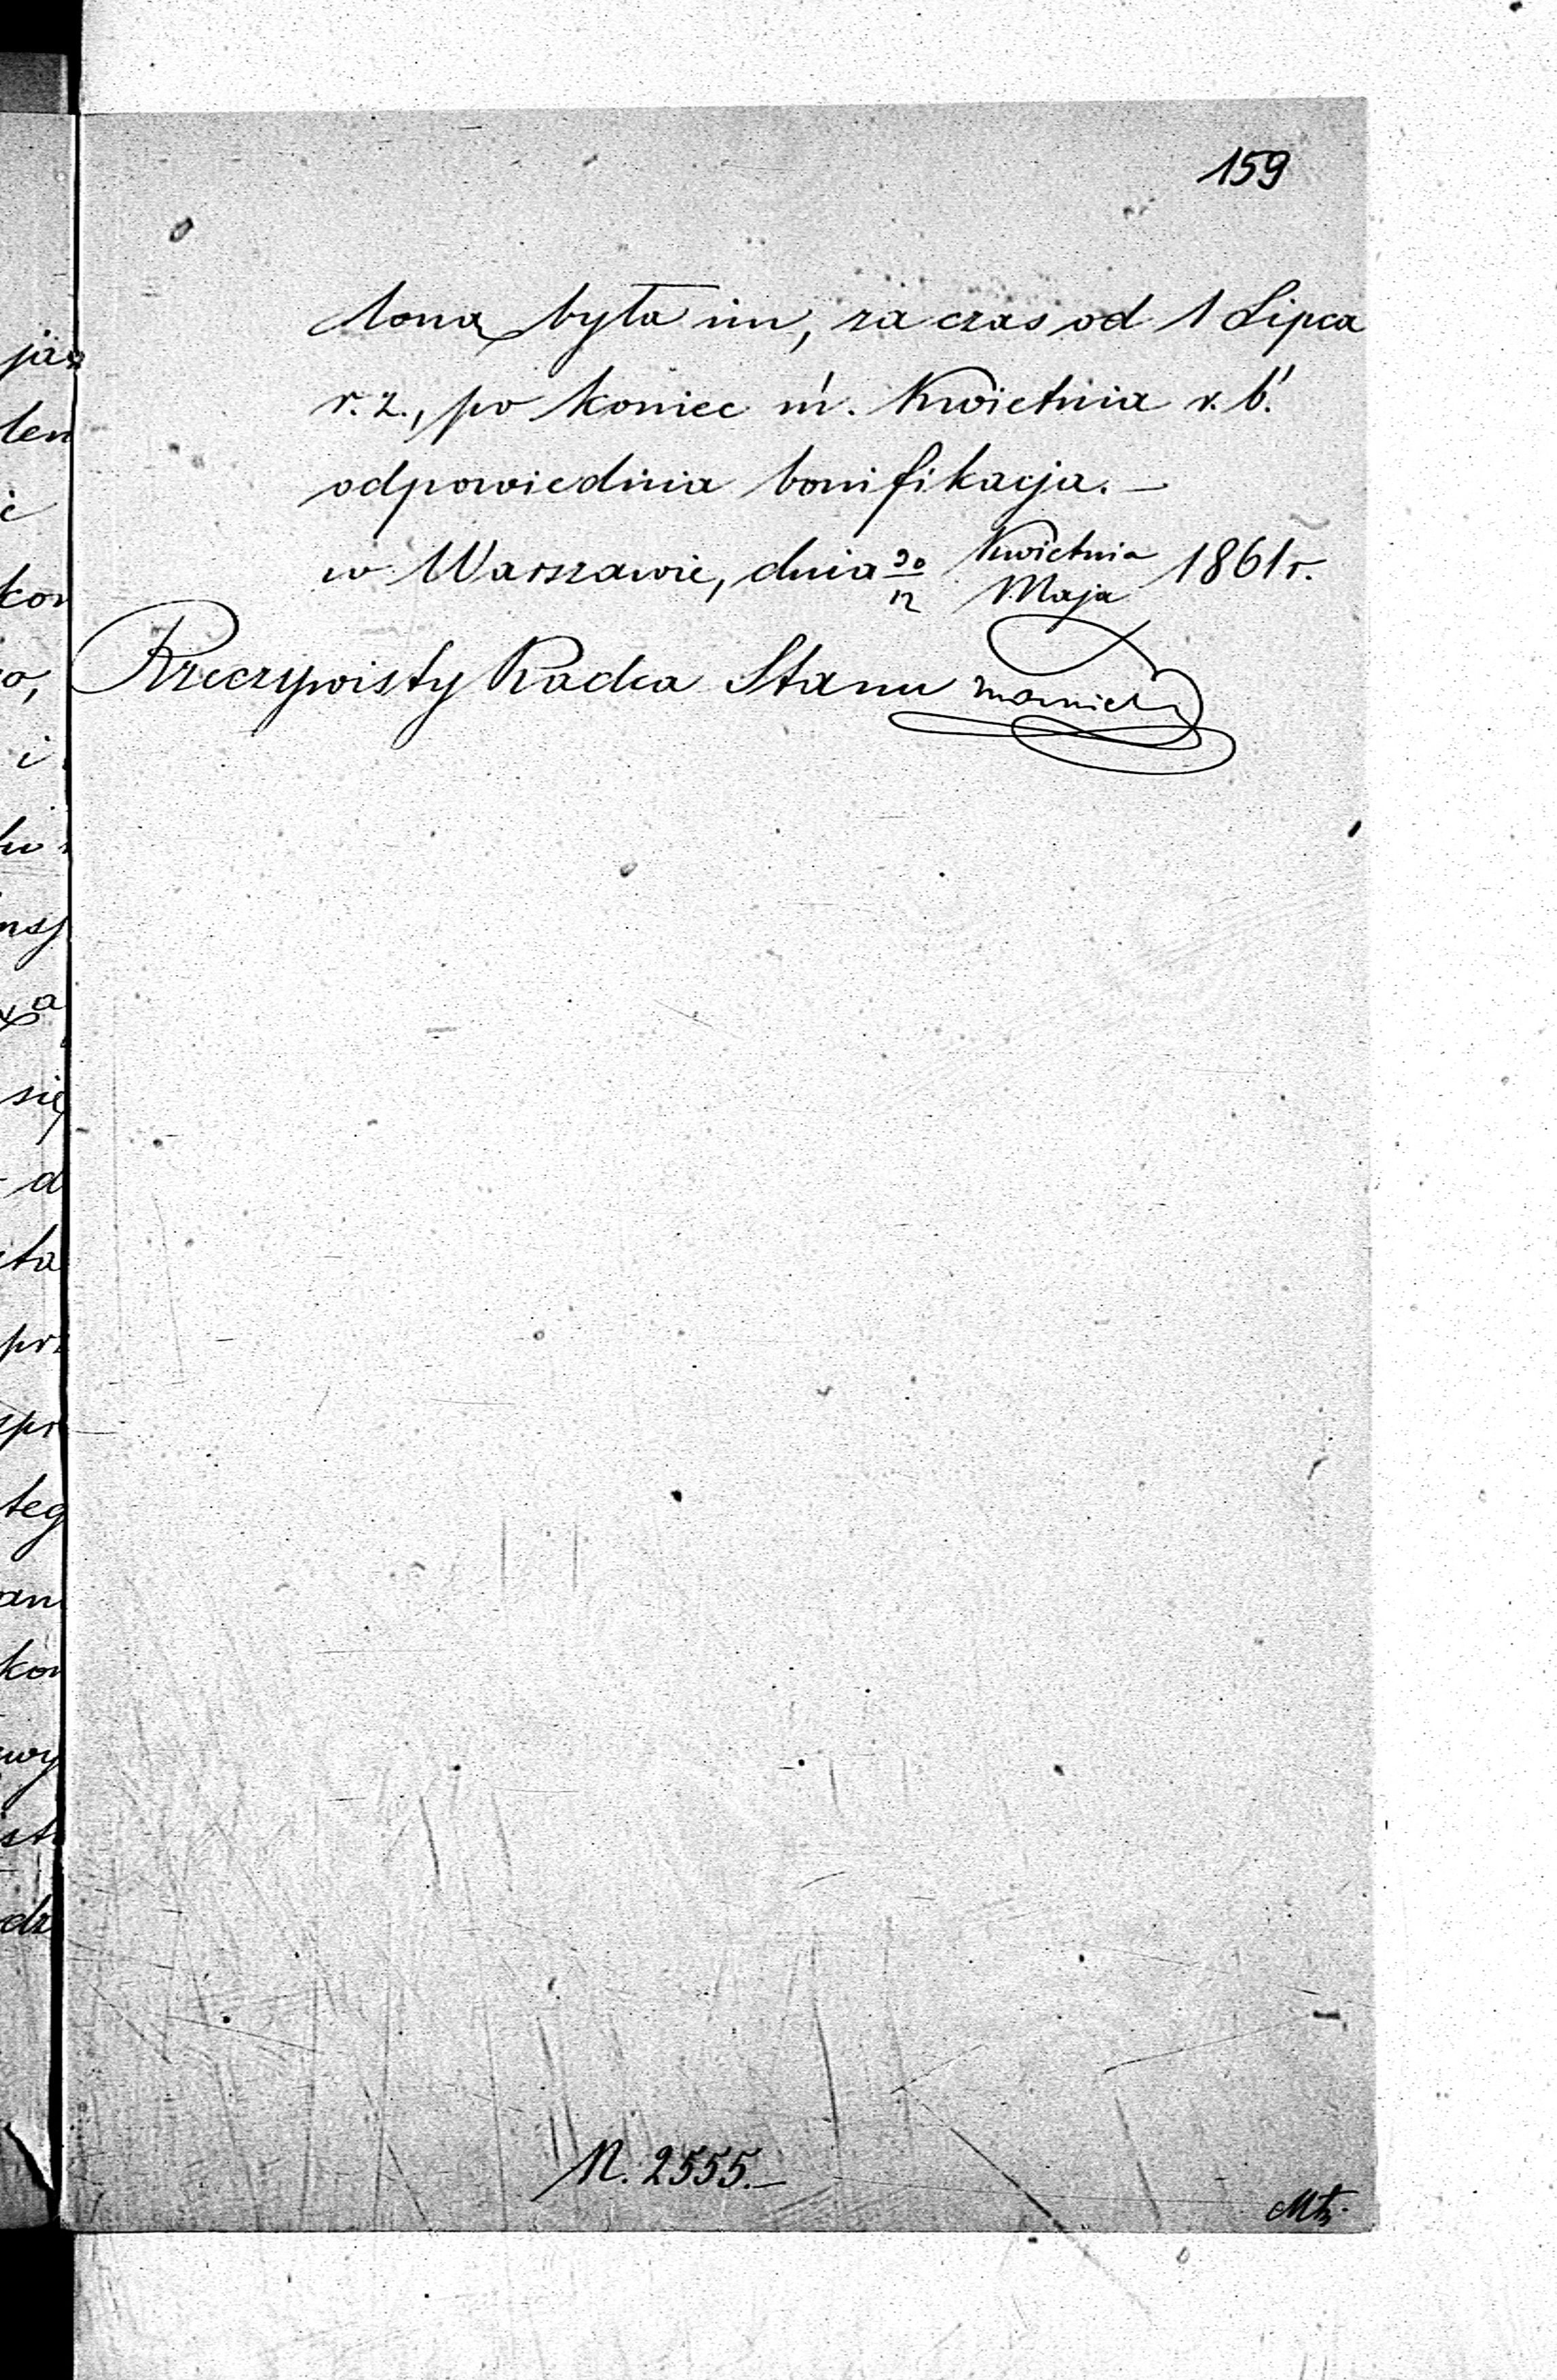 159
loną była im, za czas od 1 Lipca
r. z., po koniec m. Kwietnia r. b.
odpowiednia bonifikacja. —
w Warszawie, dnia 30/12 Kwietnia/Maja 1861 r.
Rzeczywisty Radca Stanu
N. 2555. —